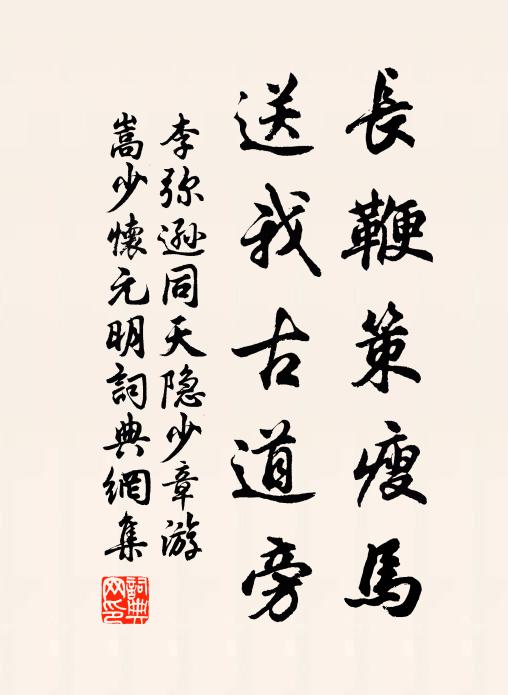 長鞭策瘦馬
送我古道旁
李弥遜同天隐少章游
嵩少懷元明詞典網集
詞典网印